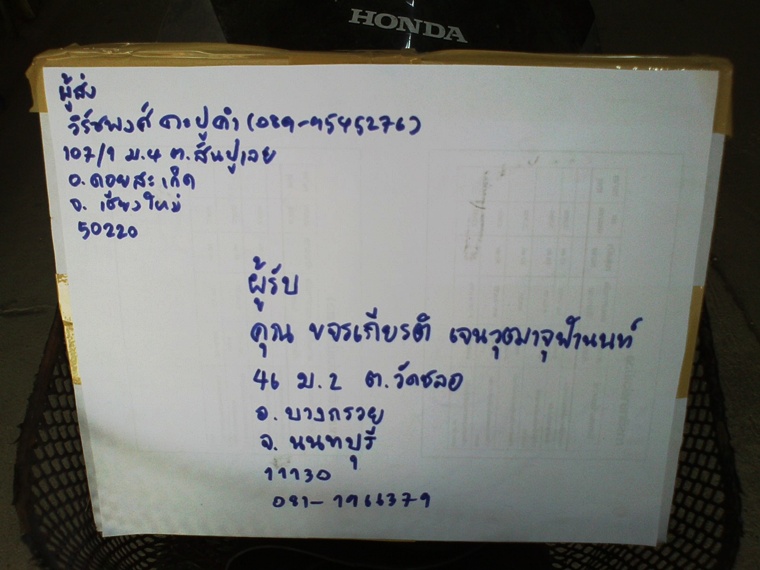 HONDA
ผู้ส่ง
วิรัชพงศ์ ดาะปูคำ (089-9545276)
107/1 ม.4 ต.สันปูเลย
อ.ดอยสะเก็ด
จ.เชียงใหม่
50220
ผู้รับ
คุณ ขจรเกียรติ
46 ม.2 ต.วัดชลอ
อ.บางกรวย
จ.นนทบุรี
11130
081-1966379